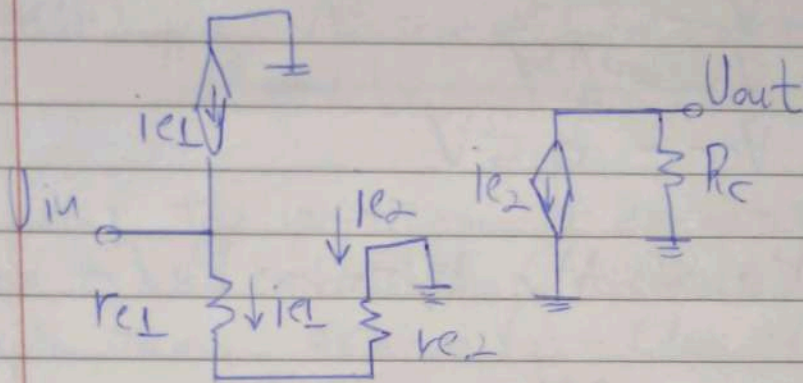 ie1
Vout
ie2
Rc
Vin
ie2
re1
ie1
re2